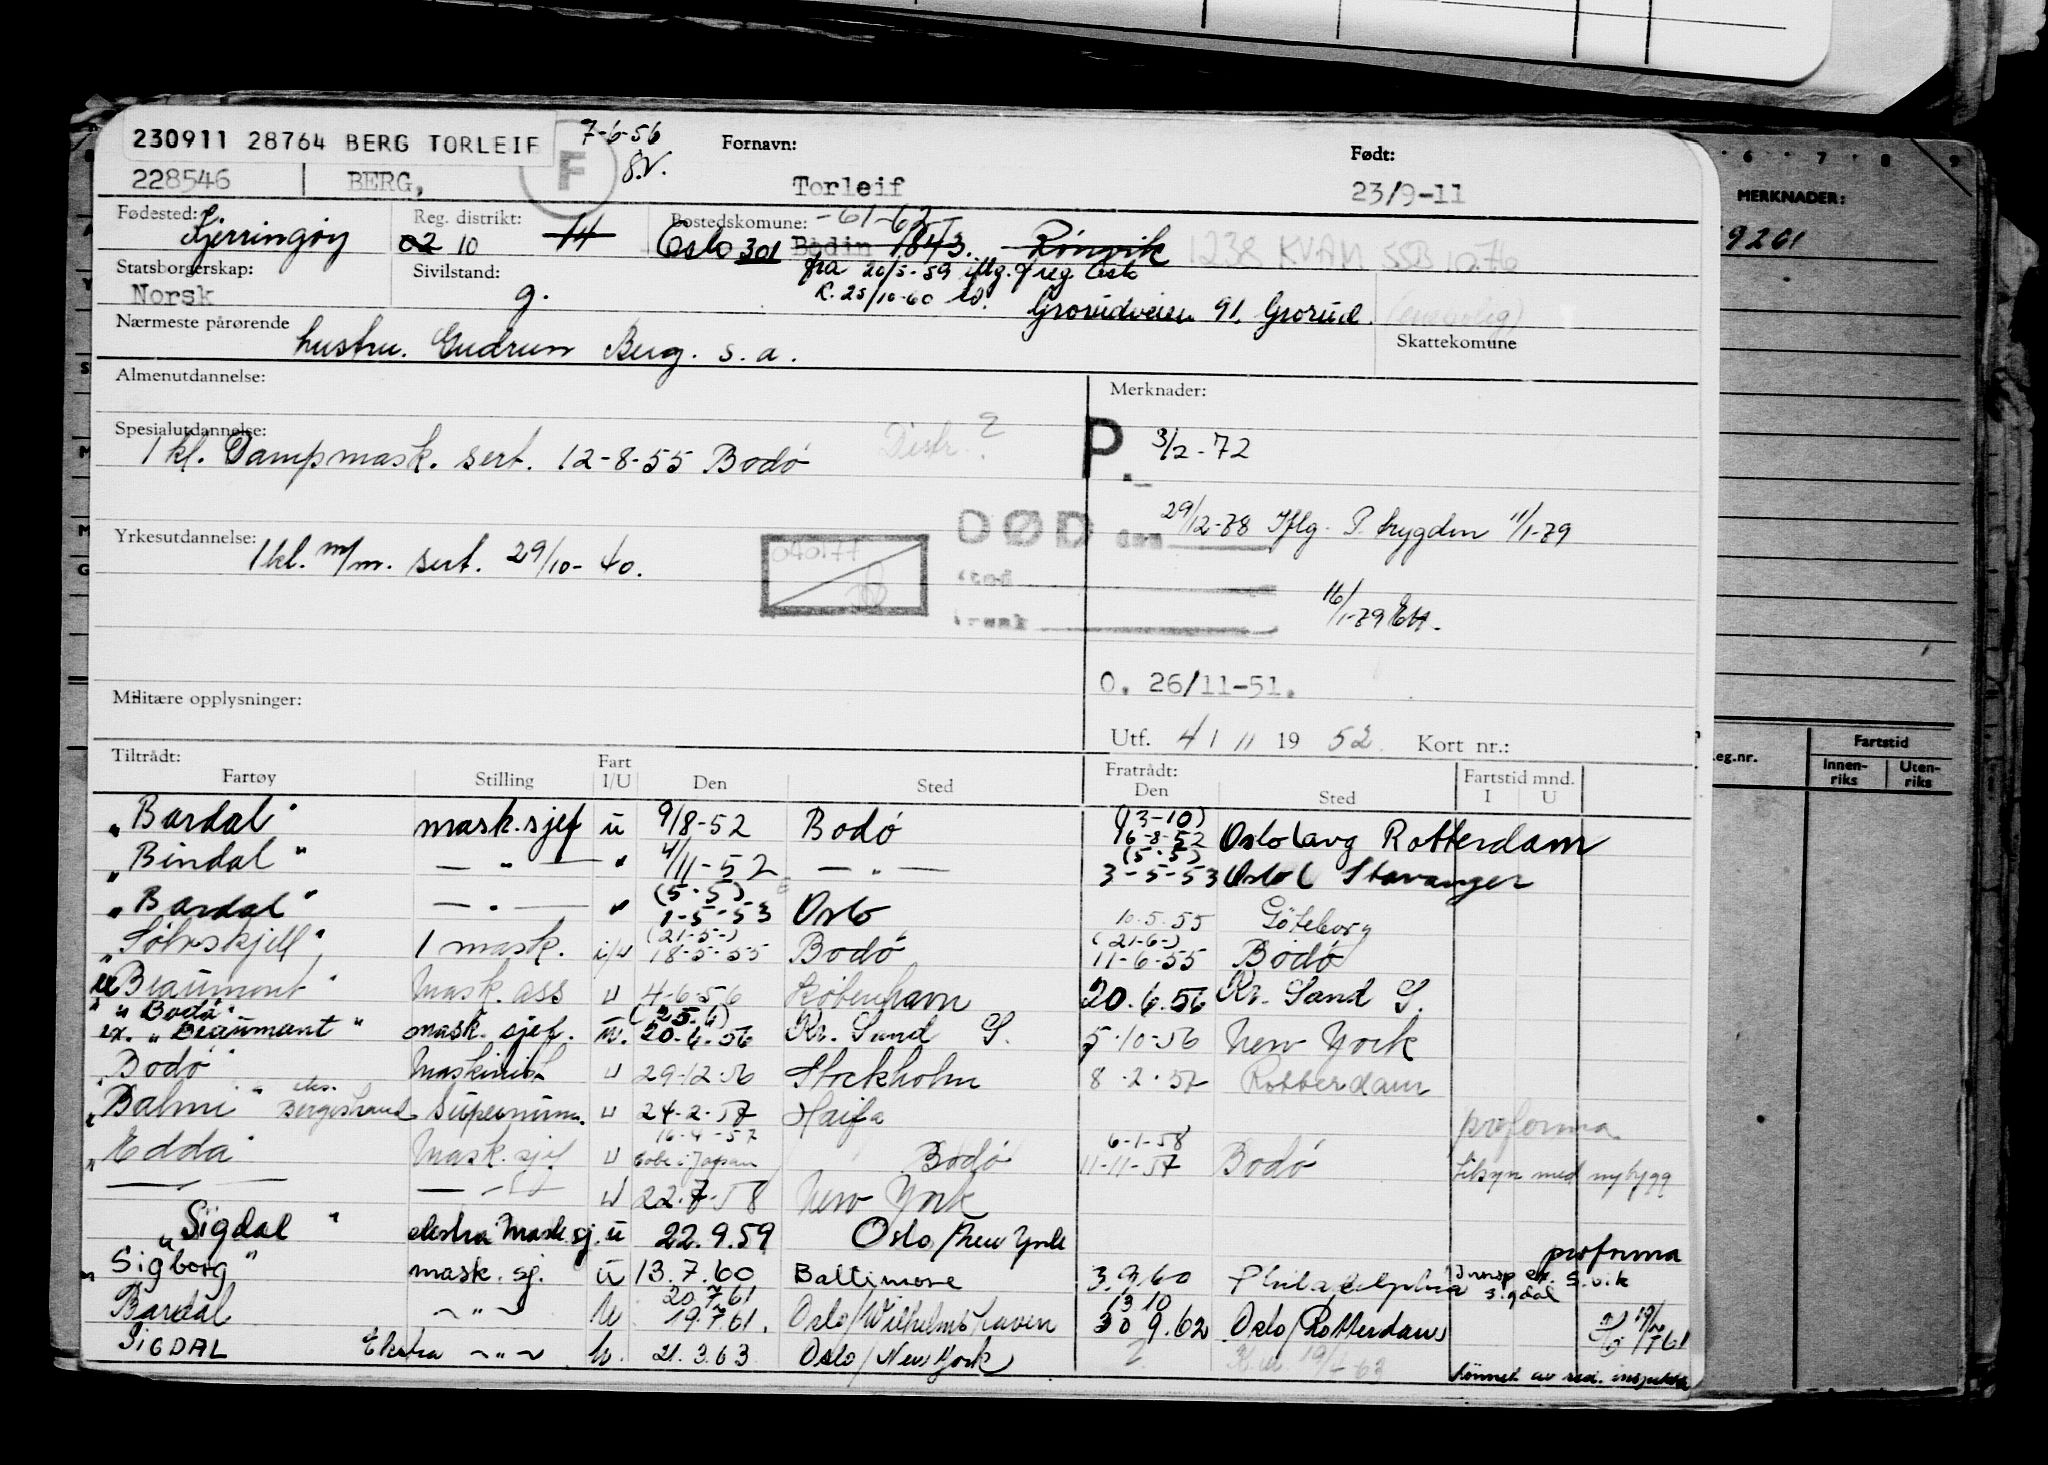 230911 28764 BERG TORLEIF
7-6-56
F
Fornavn:
Født:
228546 BERG, Torleif 23/9-11
Fødested: Kjerringøy
Reg. distrikt: 02 10 14
Bostedskomune: -61-62
Oslo 301 Bodin 1843. Rønvik
1238 KVAM SSB 10.76
Statsborgerskap: Norsk
Sivilstand: g.
fra 20/5-59 iflg. freg Oslo
R. 25/10-60
Grorudveien 91. Grorud.
Nærmeste pårørende
hustru. Gudrun Berg. s. a.
Skattekomune
Almenutdannelse:
Merknader:
Spesialutdannelse:
1 kl. Dampmask. sert. 12-8-55 Bodø
Distr. ?
P. 3/2-72
DØD den 29/12-78 Iflg. P. trygden 11/1-79
Yrkesutdannelse: 1 kl. m/m. sert. 29/10-40.
040177
16/1-79
O. 26/11-51.
Militære opplysninger:
Utf. 4/11 1952 Kort nr.:
Tiltrådt:
Fartøy Stilling Fart I/U Den Sted
Fratrådt:
Den Sted
Fartstid mnd.
I U
"Bardal" mask.sjef u 9/8-52 Bodø (13-10) 16-8-52 Oslo Rotterdam
"Bindal" — " — " 4/11-52 — " — (5-5) 3-5-53 Oslo Stavanger
"Bardal" — " — " (5-5) 1-5-53 Oslo 10.5.55 Göteborg
"Sølvskjell" 1 mask. i/u (21-5-) 18-5-55 Bodø (21-6-) 11-6-55 Bodø
"Beaumont" Mask. ass u 4-6-56 København 20.6.56 Kr. Sand S.
"Bodø"
ex. "Beaumont" mask. sjef. u. (25.6) 20-6-56 Kr. Sand S. 5-10-56 New York
"Bodø" Maskinist u 29-12-56 Stockholm 8-2-57 Rotterdam
"Balmi" Supernum. u 24-2-57 Haifa proforma
"Edda" Mask. sjef u 16-4-57 Kobe i Japan Bodø 6-1-58 11-11-57 Bodø tilsyn med nybygg
— " — — " — u 22-7-58 New York
"Sigdal" ekstra Mask.sj. u 22.9.59 Oslo/New York proforma
"Sigborg" mask. sj. u 13.7.60 Baltimore 3.9.60 Philadelphia
Bardal ~ " ~ u 20.7.61 19.7.61. Oslo/Wilhelmshaven 13 10 30 9.62 Oslo/Rotterdam
SIGDAL Ekstra ~ " ~ u. 21.3.63 Oslo/New York
lønnet av red.
6 7 8 9
MERKNADER:
9201
eg.nr.
Fartstid
Innen-
riks
Uten-
riks